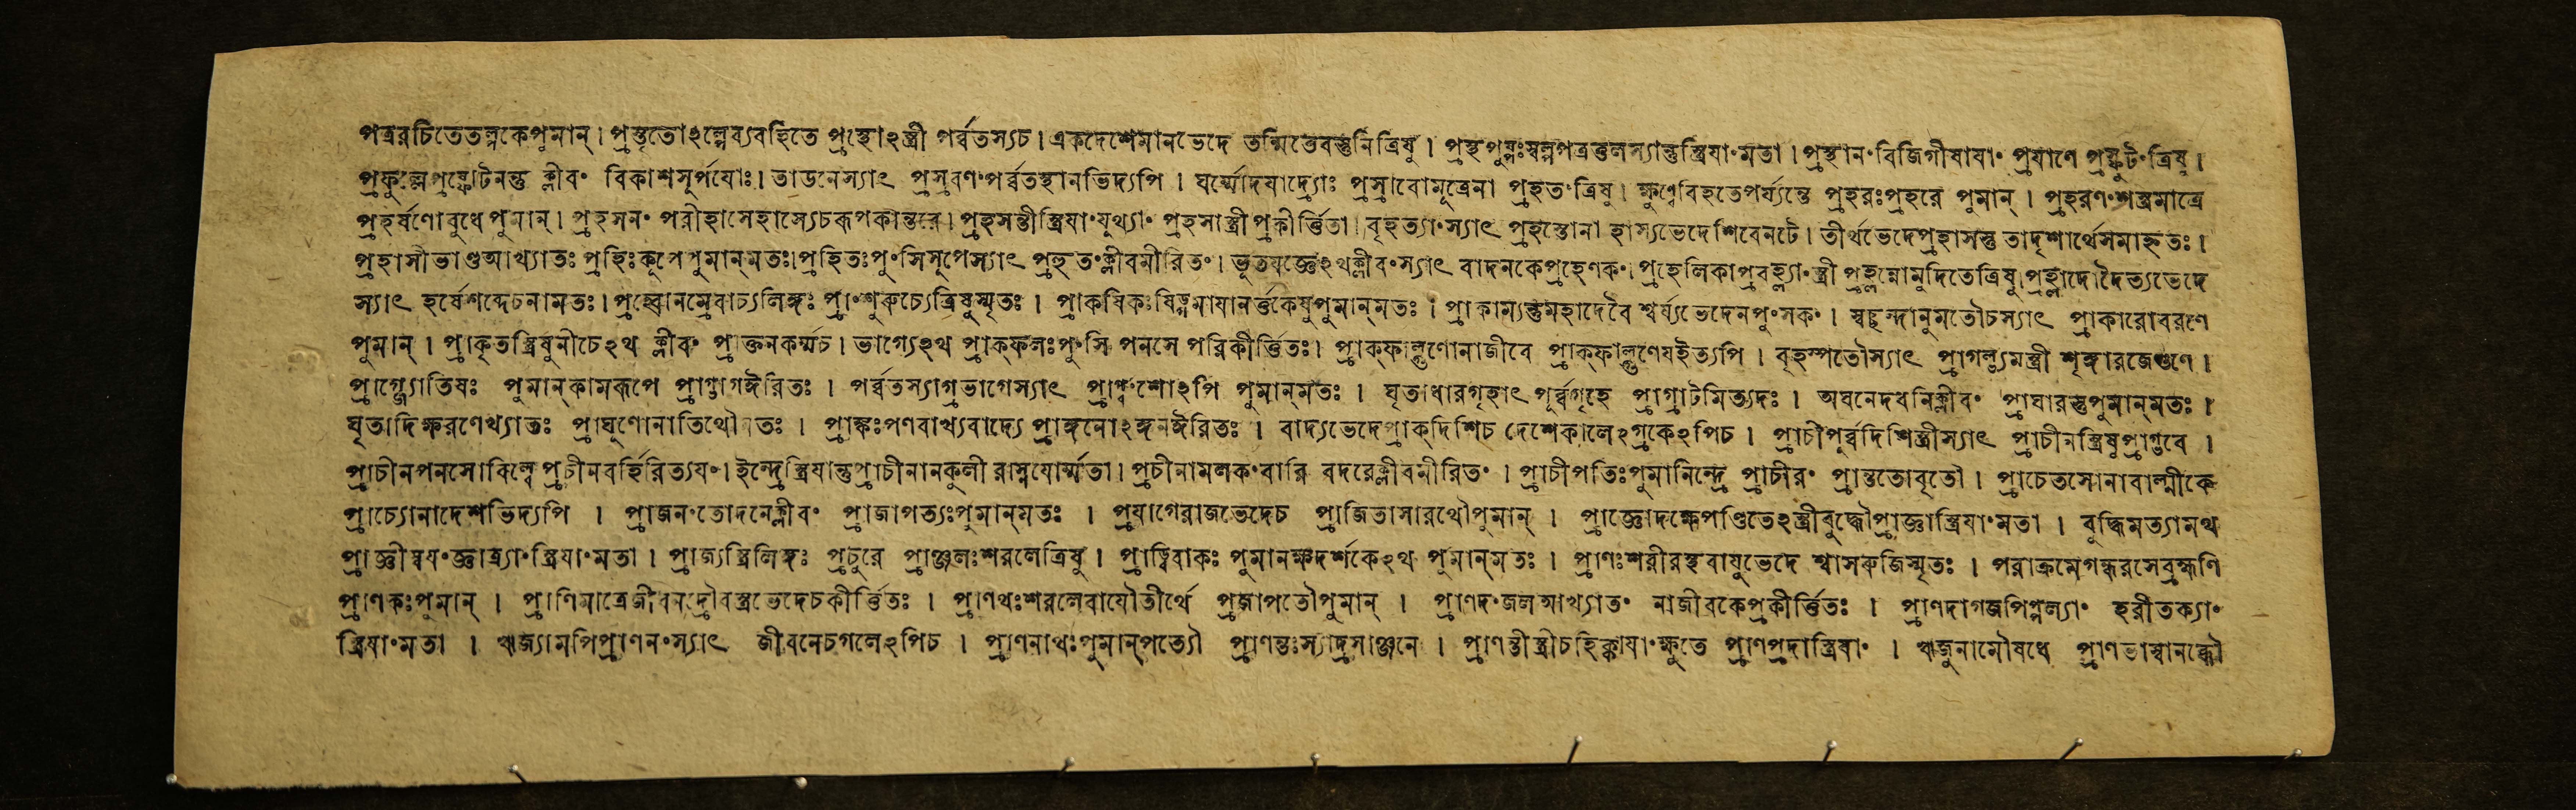 পত্ররচিতেতল্পকেপুমান্। প্রস্তৃতোঽল্পেব্যবহিতে প্রস্থোঽস্ত্রী পর্ব্বতস্যচ। একদেশেমানভেদে তন্মিতেবস্তুনিত্রিষু। প্রস্থপুষ্পঃস্বল্পপত্রতুলস্যান্তুস্ত্রিযাংমতা। প্রস্থানংবিজিগীষাযাং প্রযাণে প্রস্ফুটংত্রিষু।
প্রফুল্লেপ্রস্ফোটনন্তু ক্লীবং বিকাশসূর্পযোঃ। তাডনেস্যাৎ প্রস্রবণংপর্ব্বতস্থানভিদ্যপি। ঘর্ম্মোদযাদ্যোঃ প্রস্রাবোমূত্রেনা প্রহতংত্রিষু। ক্ষুণ্ণেবিহতেপর্য্যন্তে প্রহরঃপ্রহরে পুমান্। প্রহরণংশস্ত্রমাত্রে
প্রহর্ষণোবুধেপুমান্। প্রহসনং পরীহাসেহাস্যেচরূপকান্তরে। প্রহসন্তীস্ত্রিযাংযুথ্যাং প্রহসাস্ত্রী প্রকীর্ত্তিতা। বৃহত্যাংস্যাৎ প্রহস্তোনা হাস্যভেদেশিবেনটে। তীর্থভেদেপ্রহাসস্তু তাদৃশার্থেসমাহৃতঃ।
প্রহাসীভাণ্ডআখ্যাতঃ প্রহিঃকূপেপুমান্মতঃ। প্রহিতঃপুংসিসূপেস্যাৎ প্রহুতংক্লীবমীরিতং। ভূতযজ্ঞেঽথক্লীবংস্যাৎ বাদনকেপ্রহেণকং। প্রহেলিকাপ্রবহ্ল্যাংস্ত্রী প্রহ্লন্নোমুদিতেত্রিষু। প্রহ্লাদোদৈত্যভেদে
স্যাৎ হর্ষেশব্দেচনামতঃ। প্রহ্বোনম্রেবাচ্যলিঙ্গঃ প্রাংশুরুচ্যেত্রিষুস্মৃতঃ। প্রাকষিকঃষিড়্গমাযানর্ত্তকেষুপুমান্মতঃ। প্রাকাম্যন্তুমহাদেবৈ শ্বর্য্যভেদেনপুংসকং। স্বচ্ছন্দানুমতৌচস্যাৎ প্রাকারোবরণে
পুমান্। প্রাকৃতস্ত্রিষুনীচেঽথ ক্লীবং প্রাক্তনকর্ম্মচ। ভাগ্যেঽথ প্রাক্ফলঃপুংসি পনসে পরিকীর্ত্তিতঃ। প্রাক্ফাল্গুণোনাজীবে প্রাক্ফাল্গুণেযইত্যপি। বৃহস্পতৌস্যাৎ প্রাগল্ভ্যমস্ত্রী শৃঙ্গারজেগুণে।
প্রাগ্জ্যোতিষঃ পুমান্কামরূপে প্রাগ্ভাগঈরিতঃ। পর্ব্বতস্যাগ্রভাগেস্যাৎ প্রাগ্বংশোঽপি পুমান্মতঃ। ঘৃতাধারগৃহাৎ পূর্ব্বগৃহে প্রাগ্রাটমিত্যদঃ। অঘনেদধনিক্লীবং প্রাঘারস্তুপুমান্মতঃ।
ঘৃতাদিক্ষরণেখ্যাতঃ প্রাঘুণোনাতিথৌমতঃ। প্রাঙ্কঃপণবাখ্যবাদ্যে প্রাঙ্গনোঽঙ্গনঈরিতঃ। বাদ্যভেদেপ্রাক্দিশিচ দেশেকালেঽগ্রকেঽপিচ। প্রাচীপূর্ব্বদিশিস্ত্রীস্যাৎ প্রাচীনস্ত্রিষুপ্রাগ্ভবে।
প্রাচীনপনসোবিল্বে প্রচীনবর্হিরিত্যযং। ইন্দ্রেস্ত্রিযান্তুপ্রাচীনানকুলী রাস্নযোর্ম্মতা। প্রচীনামলকংবারি বদরেক্লীবমীরিতং। প্রাচীপতিঃপুমানিন্দ্রে প্রাচীরং প্রান্ততোবৃতৌ। প্রাচেতসোনাবাল্মীকে
প্রাচ্যোনাদেশভিদ্যপি। প্রাজনংতোদনেক্লীবং প্রাজাপত্যঃপুমান্মতঃ। প্রযাগেরাজভেদেচ প্রাজিতাসারথৌপুমান্। প্রাজ্ঞোদক্ষেপণ্ডিতেঽস্ত্রীবুদ্ধৌপ্রাজ্ঞাস্ত্রিযাংমতা। বুদ্ধিমত্যামথ
প্রাজ্ঞীস্বযংজ্ঞাত্র্যাংস্ত্রিযাংমতা। প্রাজ্যস্ত্রিলিঙ্গঃ প্রচুরে প্রাঞ্জলঃশরলেত্রিষু। প্রাড্বিবাকঃ পুমানক্ষদর্শকেঽথ পুমান্মতঃ। প্রাণঃশরীরস্থবাযুভেদে শ্বাসরুজিস্মৃতঃ। পরাক্রমেগন্ধরসেব্রহ্মণি
প্রাণকঃপুমান্। প্রাণিমাত্রেজীবনদ্রৌবস্ত্রভেদেচকীর্ত্তিতঃ। প্রাণথঃশরলেবাযৌতীর্থে প্রজাপতৌপুমান্। প্রাণদংজলআখ্যাতং নাজীবকেপ্রকীর্ত্তিতঃ। প্রাণদাগজপিপ্পল্যাং হরীতক্যাং
স্ত্রিযাংমতা। ঋজ্যামপিপ্রাণনংস্যাৎ জীবনেচগলেঽপিচ। প্রাণনাথঃপুমান্পত্যৌ প্রাণন্তঃস্যাদ্রসাঞ্জনে। প্রাণন্তীস্ত্রীচহিক্কাযাংক্ষুতে প্রাণপ্রদাস্ত্রিযাং। ঋজুনামৌষধে প্রাণভাস্বানব্ধৌ